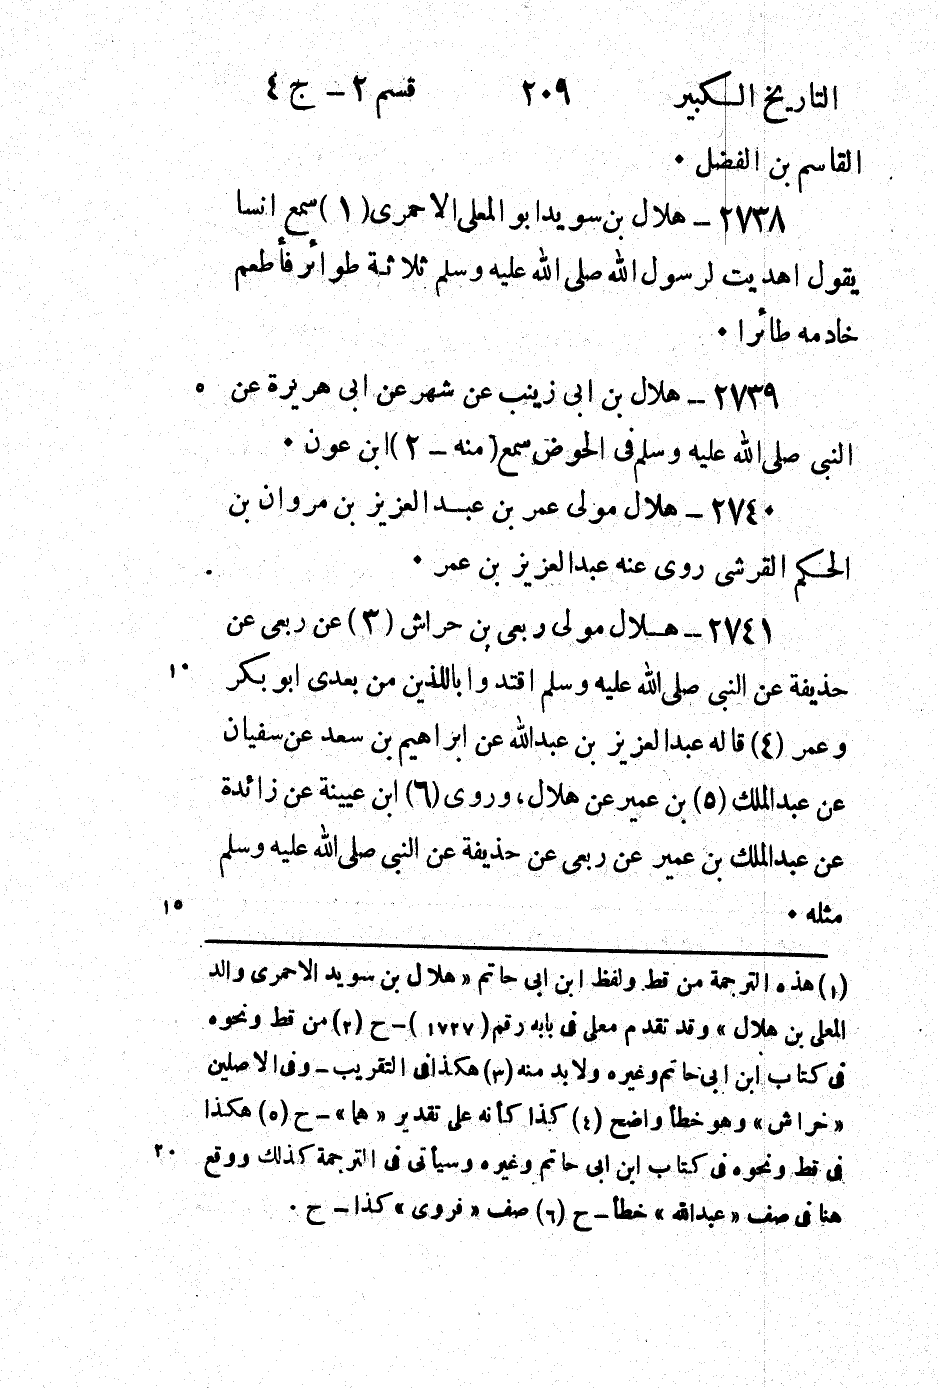 التاريخ الـكبير ٢٠٩ قسم ٢ – ج ٤
القاسم بن الفضل ٠
٢٧٣٨ – هلال بن سويد ابو المعلى الاحمرى (١) سمع انسا
يقول اهديت لرسول الله صلى الله عليه وسلم ثلاثة طوائر فأطعم
خادمه طائرا ٠
٢٧٣٩ – هلال بن ابى زينب عن شهر عن ابى هريرة عن ٥
النبى صلى الله عليه وسلم فى الحوض سمع (منه – ٢) ابن عون ٠
٢٧٤٠ – هلال مولى عمر بن عبـد العزيز بن مروان بن
الحـكم القرشى روى عنه عبد العزيز بن عمر ٠
٢٧٤١ – هـلال مولى ربعى بن حراش (٣) عن ربعى عن
حذيفة عن النبى صلى الله عليه وسلم اقتدوا باللذين من بعدى ابو بكر ١٠
وعمر (٤) قاله عبد العزيز بن عبد الله عن ابراهيم بن سعد عن سفيان
عن عبد الملك (٥) بن عمير عن هلال، وروى (٦) ابن عيينة عن زائدة
عن عبد الملك بن عمير عن ربعى عن حذيفة عن النبى صلى الله عليه وسلم
مثله ٠ ١٥
(١) هذه الترجمة من قط ولفظ ابن ابى حاتم « هلال بن سويد الاحمرى والد
المعلى بن هلال » وقد تقدم معلى فى بابه رقم (١٧٢٧) – ح (٢) من قط ونحوه
فى كتاب ابن ابى حاتم وغيره ولا بد منه (٣) هكذا فى التقريب – وفى الاصلين
« خراش » وهو خطأ واضح (٤) كذا كأنه على تقدير « هما » – ح (٥) هكذا
فى قط ونحوه فى كتاب ابن ابى حاتم وغيره وسيأتى فى الترجمة كذلك ووقع ٢٠
هنا فى صف « عبد الله » خطأ – ح (٦) صف « فروى » كذا – ح ٠